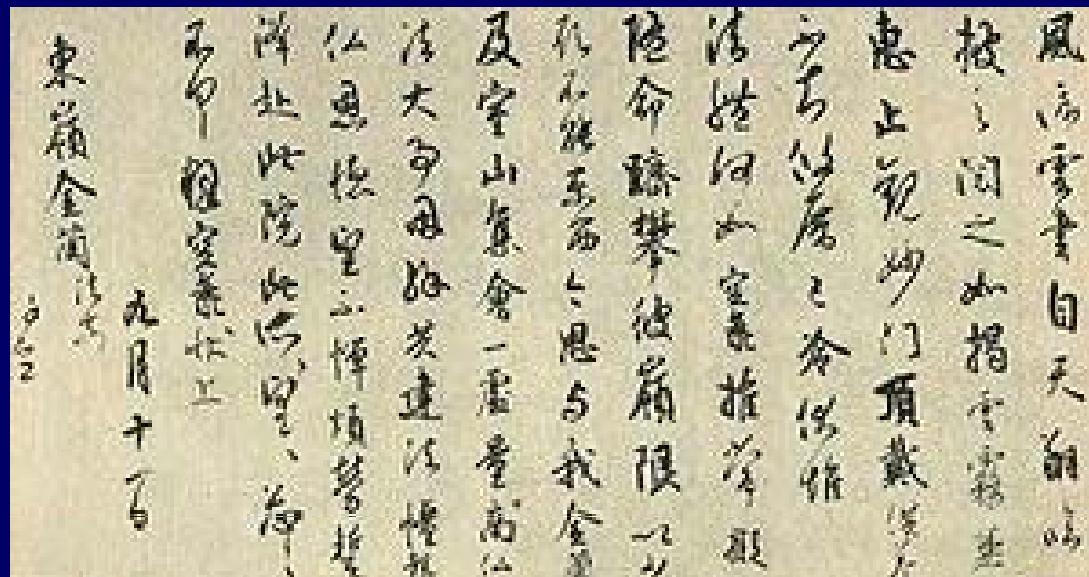 風信雲書自天翔臨
披之閲之如掲雲霧兼
恵止観妙門頂戴供養
不知攸厝已冷伏惟
法體何如空海推常擬
隨命躋攀彼嶺限以少
願不能東西今思与我金蘭
及室山集會一處量商仏
法大事因縁共建法幢報
仏恩徳望不憚煩勞蹔
降赴此院此所望々々忩
不具釋空海状上
九月十一日
東嶺金蘭法前
謹空